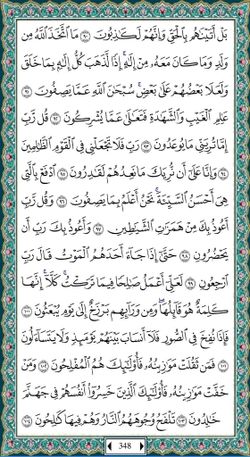 بَلْ أَتَيْنَٰهُم بِٱلْحَقِّ وَإِنَّهُمْ لَكَٰذِبُونَ ٩٠ مَا ٱتَّخَذَ ٱللَّهُ مِن
وَلَدٍ وَمَا كَانَ مَعَهُۥ مِنْ إِلَٰهٍ ۚ إِذًا لَّذَهَبَ كُلُّ إِلَٰهٍۭ بِمَا خَلَقَ
وَلَعَلَا بَعْضُهُمْ عَلَىٰ بَعْضٍ ۚ سُبْحَٰنَ ٱللَّهِ عَمَّا يَصِفُونَ ٩١
عَٰلِمِ ٱلْغَيْبِ وَٱلشَّهَٰدَةِ فَتَعَٰلَىٰ عَمَّا يُشْرِكُونَ ٩٢ قُل رَّبِّ
إِمَّا تُرِيَنِّى مَا يُوعَدُونَ ٩٣ رَبِّ فَلَا تَجْعَلْنِى فِى ٱلْقَوْمِ ٱلظَّٰلِمِينَ
٩٤ وَإِنَّا عَلَىٰٓ أَن نُّرِيَكَ مَا نَعِدُهُمْ لَقَٰدِرُونَ ٩٥ ٱدْفَعْ بِٱلَّتِى
هِىَ أَحْسَنُ ٱلسَّيِّئَةَ ۚ نَحْنُ أَعْلَمُ بِمَا يَصِفُونَ ٩٦ وَقُل رَّبِّ
أَعُوذُ بِكَ مِنْ هَمَزَٰتِ ٱلشَّيَٰطِينِ ٩٧ وَأَعُوذُ بِكَ رَبِّ أَن
يَحْضُرُونِ ٩٨ حَتَّىٰٓ إِذَا جَآءَ أَحَدَهُمُ ٱلْمَوْتُ قَالَ رَبِّ
ٱرْجِعُونِ ٩٩ لَعَلِّىٓ أَعْمَلُ صَٰلِحًا فِيمَا تَرَكْتُ ۚ كَلَّآ ۚ إِنَّهَا
كَلِمَةٌ هُوَ قَآئِلُهَا ۖ وَمِن وَرَآئِهِم بَرْزَخٌ إِلَىٰ يَوْمِ يُبْعَثُونَ ١٠٠
فَإِذَا نُفِخَ فِى ٱلصُّورِ فَلَآ أَنسَابَ بَيْنَهُمْ يَوْمَئِذٍ وَلَا يَتَسَآءَلُونَ
١٠١ فَمَن ثَقُلَتْ مَوَٰزِينُهُۥ فَأُو۟لَٰٓئِكَ هُمُ ٱلْمُفْلِحُونَ ١٠٢ وَمَنْ
خَفَّتْ مَوَٰزِينُهُۥ فَأُو۟لَٰٓئِكَ ٱلَّذِينَ خَسِرُوٓا۟ أَنفُسَهُمْ فِى جَهَنَّمَ
خَٰلِدُونَ ١٠٣ تَلْفَحُ وُجُوهَهُمُ ٱلنَّارُ وَهُمْ فِيهَا كَٰلِحُونَ ١٠٤
348